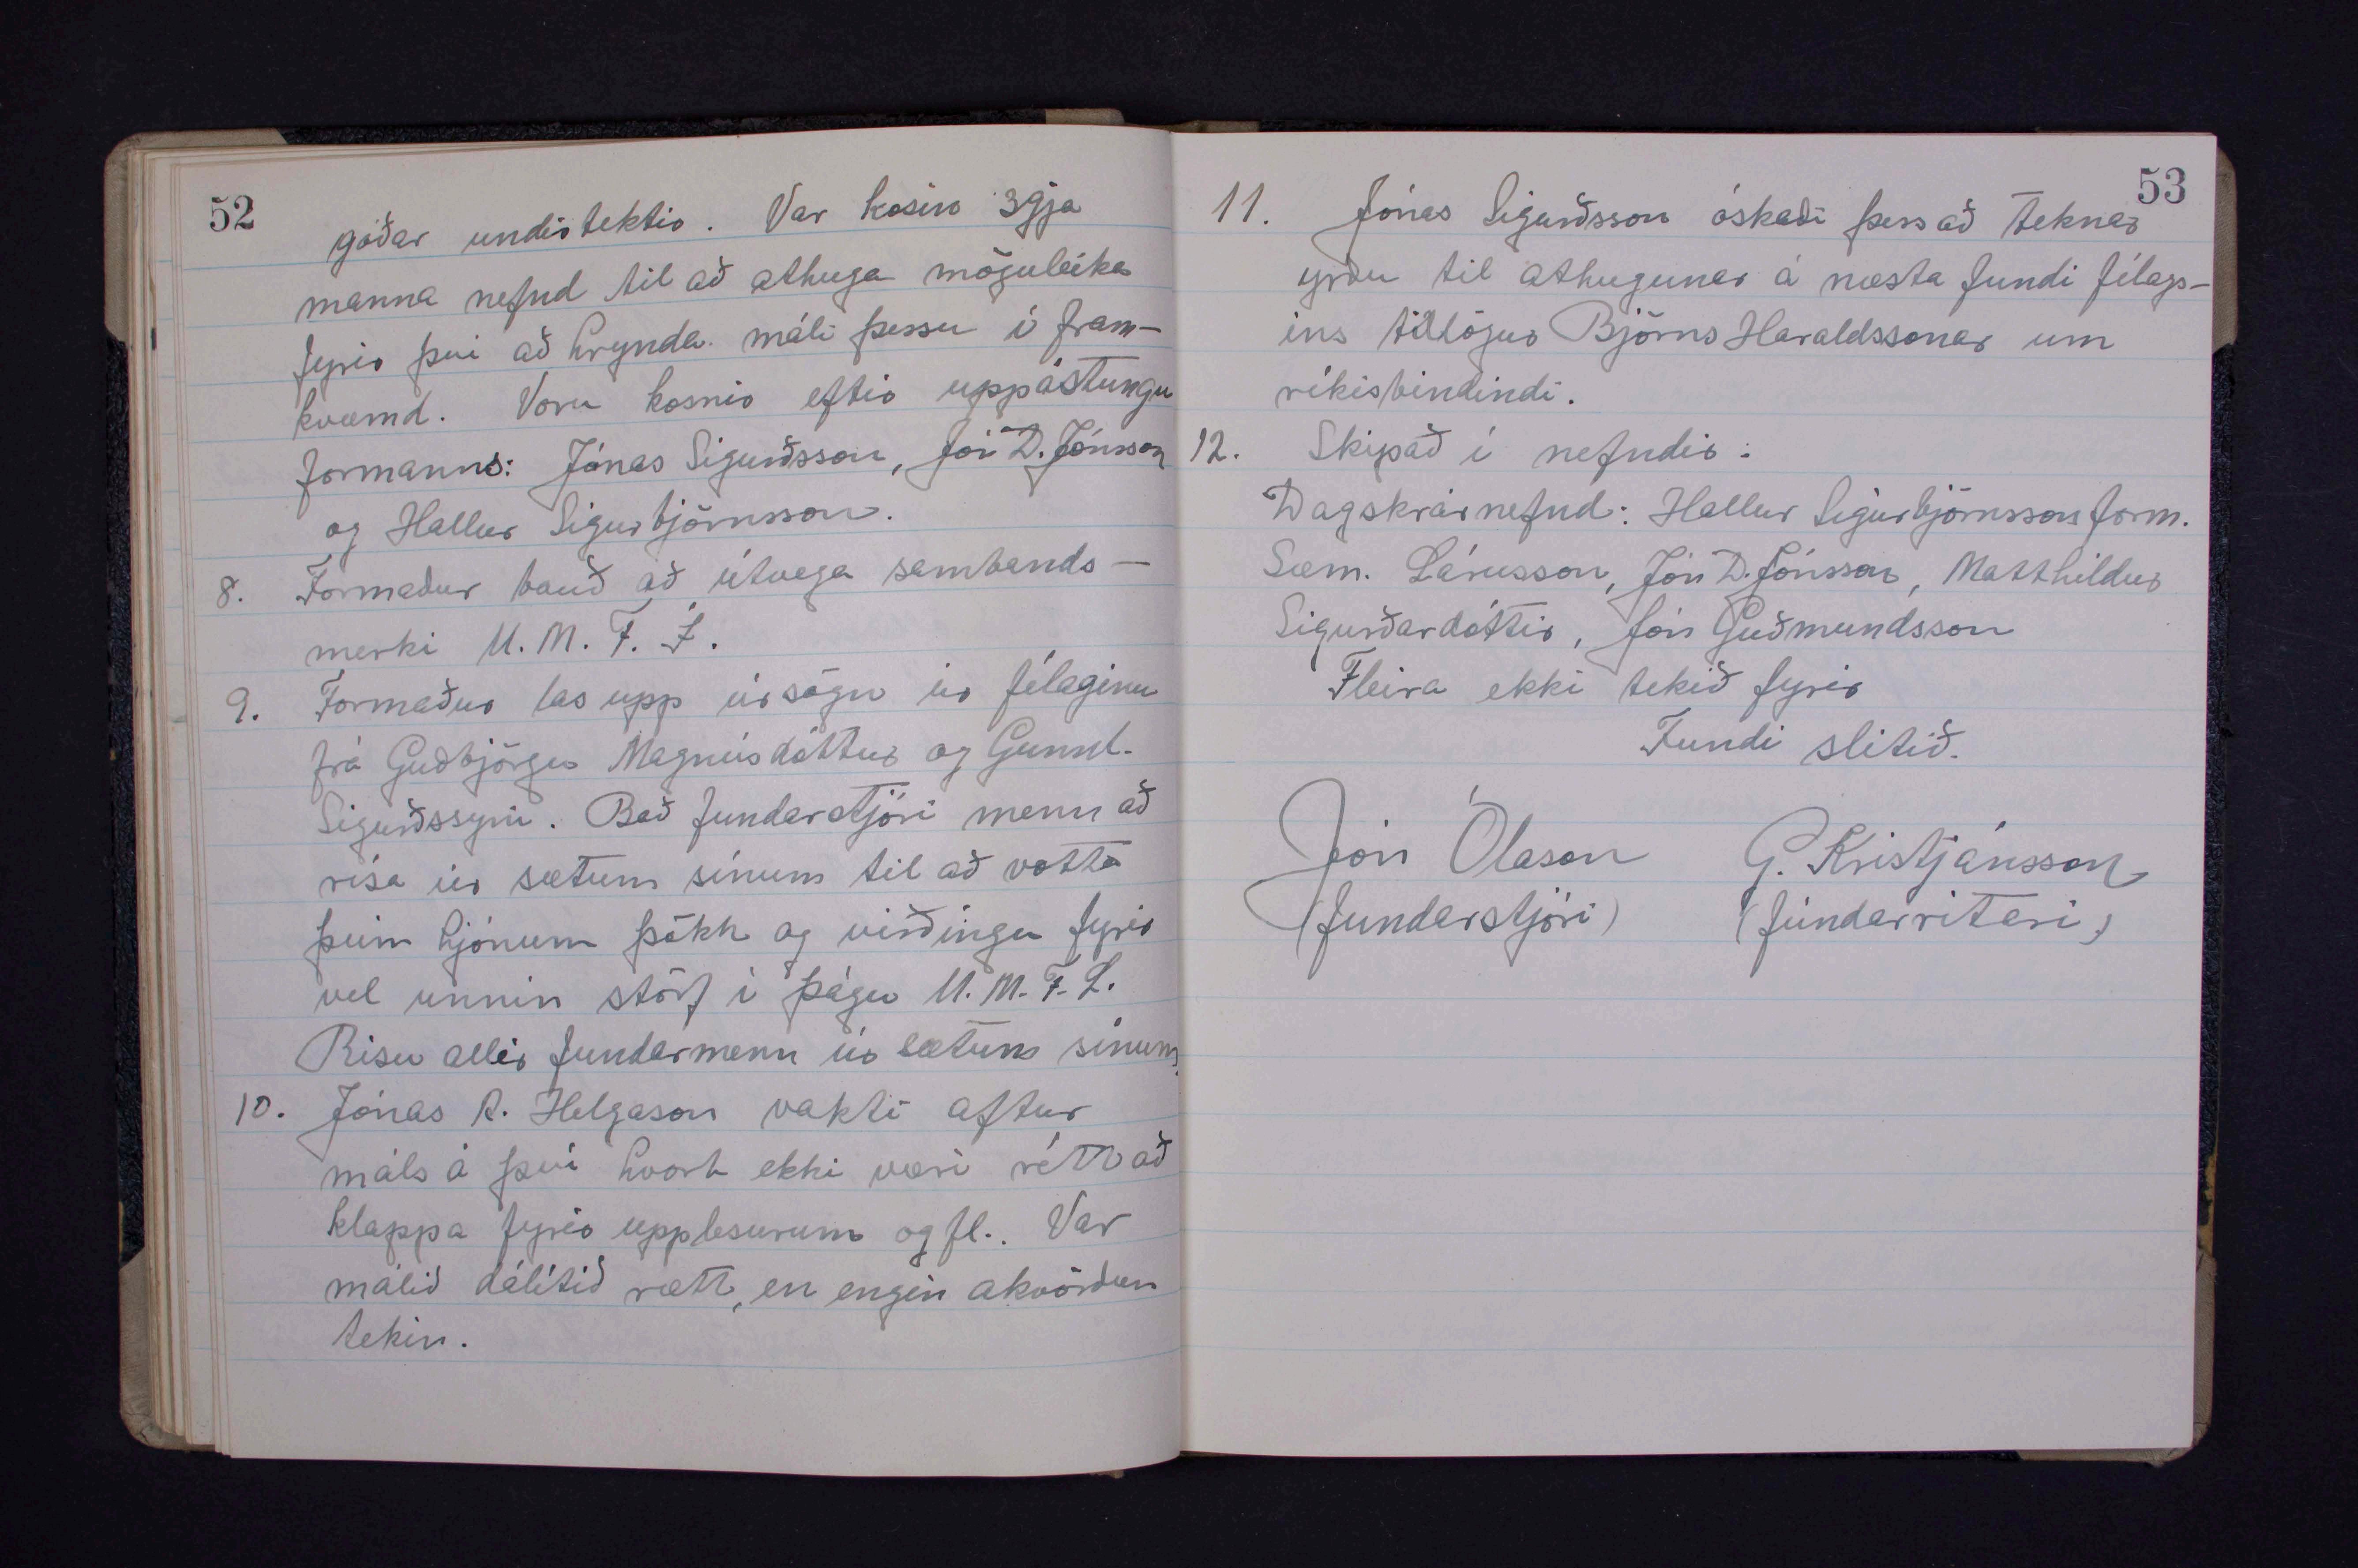 52
góðar undirtektir. Var kosin 3gja
manna nefnd til að athuga möguleika
fyrir því að hrynda máli þessu í fram-
kvæmd. Voru kosnir eftir uppástungu
formanns: Jónas Sigurðsson, Jón D. Jónsson
og Hallur Sigurbjörnsson.
8. Formaður bauð að útvega sambands-
merki U. M. F. Í.
9. Formaður las upp úrsögn úr félaginu
frá Guðbjörgu Magnúsdóttur og Gunnl.
Sigurðssyni. Bað fundarstjóri menn að
rísa úr sætum sínum til að votta
þeim hjónum þökk og virðingu fyrir
vel unnin störf í þágu U. M. F. L.
Risu allir fundarmenn úr sætum sínum.
10. Jónas R. Helgason vakti aftur
máls á því hvort ekki væri rétt að
klappa fyrir upplesurum og fl.. Var
málið dálítið rætt, en engin akvörðun
tekin.
53
11. Jónas Sigurðsson óskaði þess að teknar
yrðu til athugunar á næsta fundi félags-
ins tillögur Björns Haraldssonar um
ríkisbindindi.
12. Skipað í nefndir:
Dagskrárnefnd: Hallur Sigurbjörnsson form.
Sæm. Lárusson, Jón D. Jónsson, Matthildur
Sigurðardóttir, Jón Guðmundsson
Fleira ekki tekið fyrir
Fundi slitið.
Jón Ólason G. Kristjánsson
(fundarstjóri) (fundarritari)